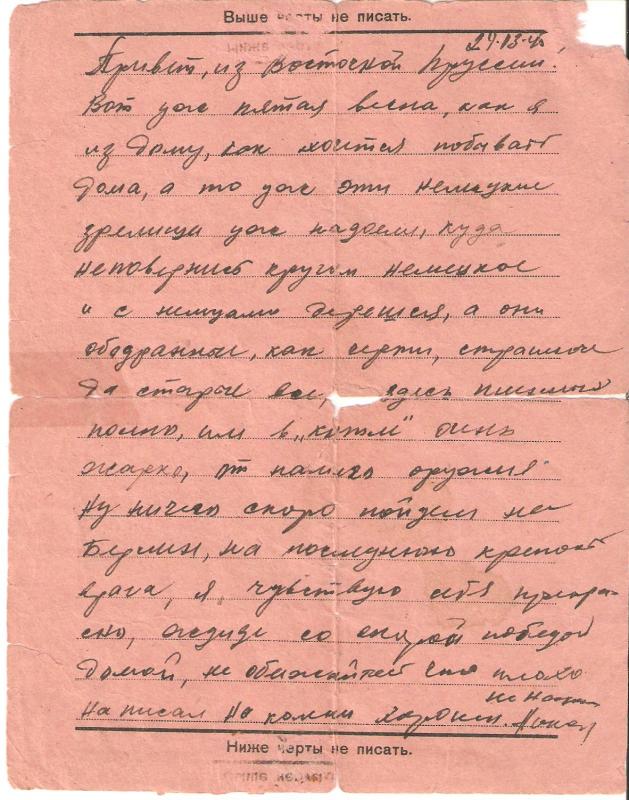 Выше черты не писать.
Привет, из Восточной Пруссии!
Вот уже пятая весна, как я
из дому, как хочется побывать
дома, а то уже эти немецкие
зрелища уже надоели, куда
неповернись кругом немецкое
и с немцами дерешься, а они
ободранные, как черти, страшные
да старые все, здесь пленных
полно, им в „котле" очень
жарко, от нашего оружия
Ну ничего скоро пойдем на
Берлин, на последнюю крепость
врага, я, чувствую себя прекра-
сно, ждите со скорой победой
домой, не обижайтесь что плохо
написал на камни
Ниже черты не писать.